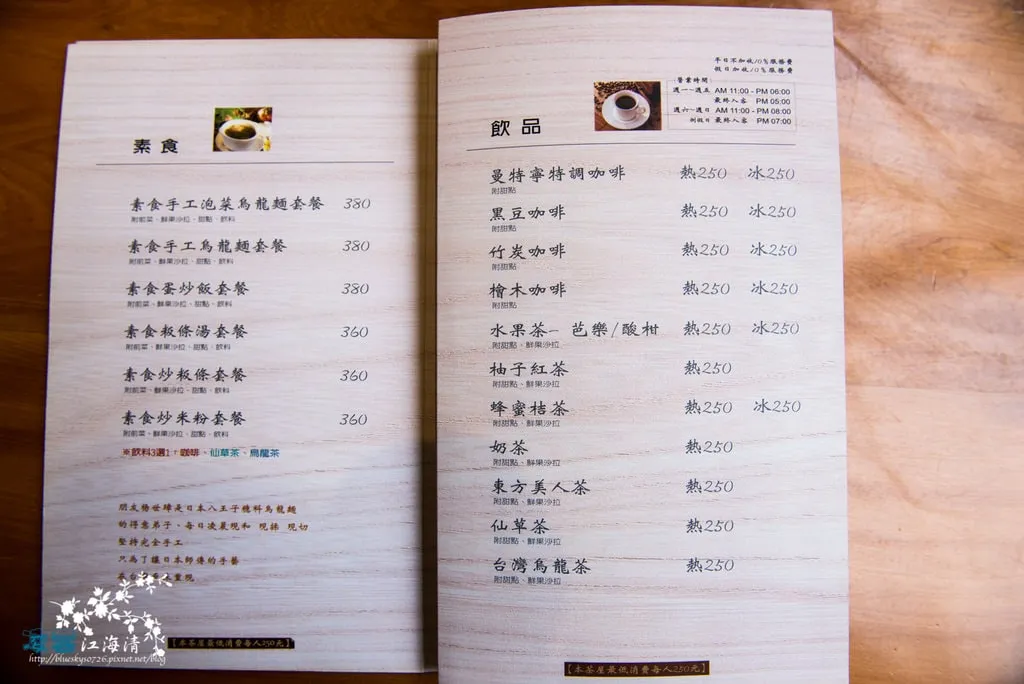 素食
素食手工泡菜烏龍麵套餐 380
附前菜、鮮果沙拉、甜點、飲料
素食手工烏龍麵套餐 380
附前菜、鮮果沙拉、甜點、飲料
素食蛋炒飯套餐 380
附前菜、鮮果沙拉、甜點、飲料
素食粄條湯套餐 360
附前菜、鮮果沙拉、甜點、飲料
素食炒粄條套餐 360
附前菜、鮮果沙拉、甜點、飲料
素食炒米粉套餐 360
附前菜、鮮果沙拉、甜點、飲料
※飲料3選1:咖啡、仙草茶、烏龍茶
朋友楊世璋是日本八王子穗科烏龍麵
的得意弟子、每日凌晨現和 現揉 現切
堅持完全手工
只為了讓日本師傅的手藝
重現
【本茶屋最低消費每人250元】
江海清
http://bluesky0726.pixnet.net/blog
平日不加收10%服務費
假日加收10%服務費
營業時間:
週一~週五 AM 11:00 - PM 06:00
最終入客 PM 05:00
週六~週日 AM 11:00 - PM 08:00
例假日 最終入客 PM 07:00
飲品
曼特寧特調咖啡 熱250 冰250
附甜點
黑豆咖啡 熱250 冰250
附甜點
竹炭咖啡 熱250 冰250
附甜點
檜木咖啡 熱250 冰250
附甜點
水果茶- 芭樂/酸柑 熱250 冰250
附甜點、鮮果沙拉
柚子紅茶 熱250
附甜點、鮮果沙拉
蜂蜜桔茶 熱250 冰250
附甜點、鮮果沙拉
奶茶 熱250
附甜點、鮮果沙拉
東方美人茶 熱250
附甜點、鮮果沙拉
仙草茶 熱250
附甜點、鮮果沙拉
台灣烏龍茶 熱250
附甜點、鮮果沙拉
【本茶屋最低消費每人250元】